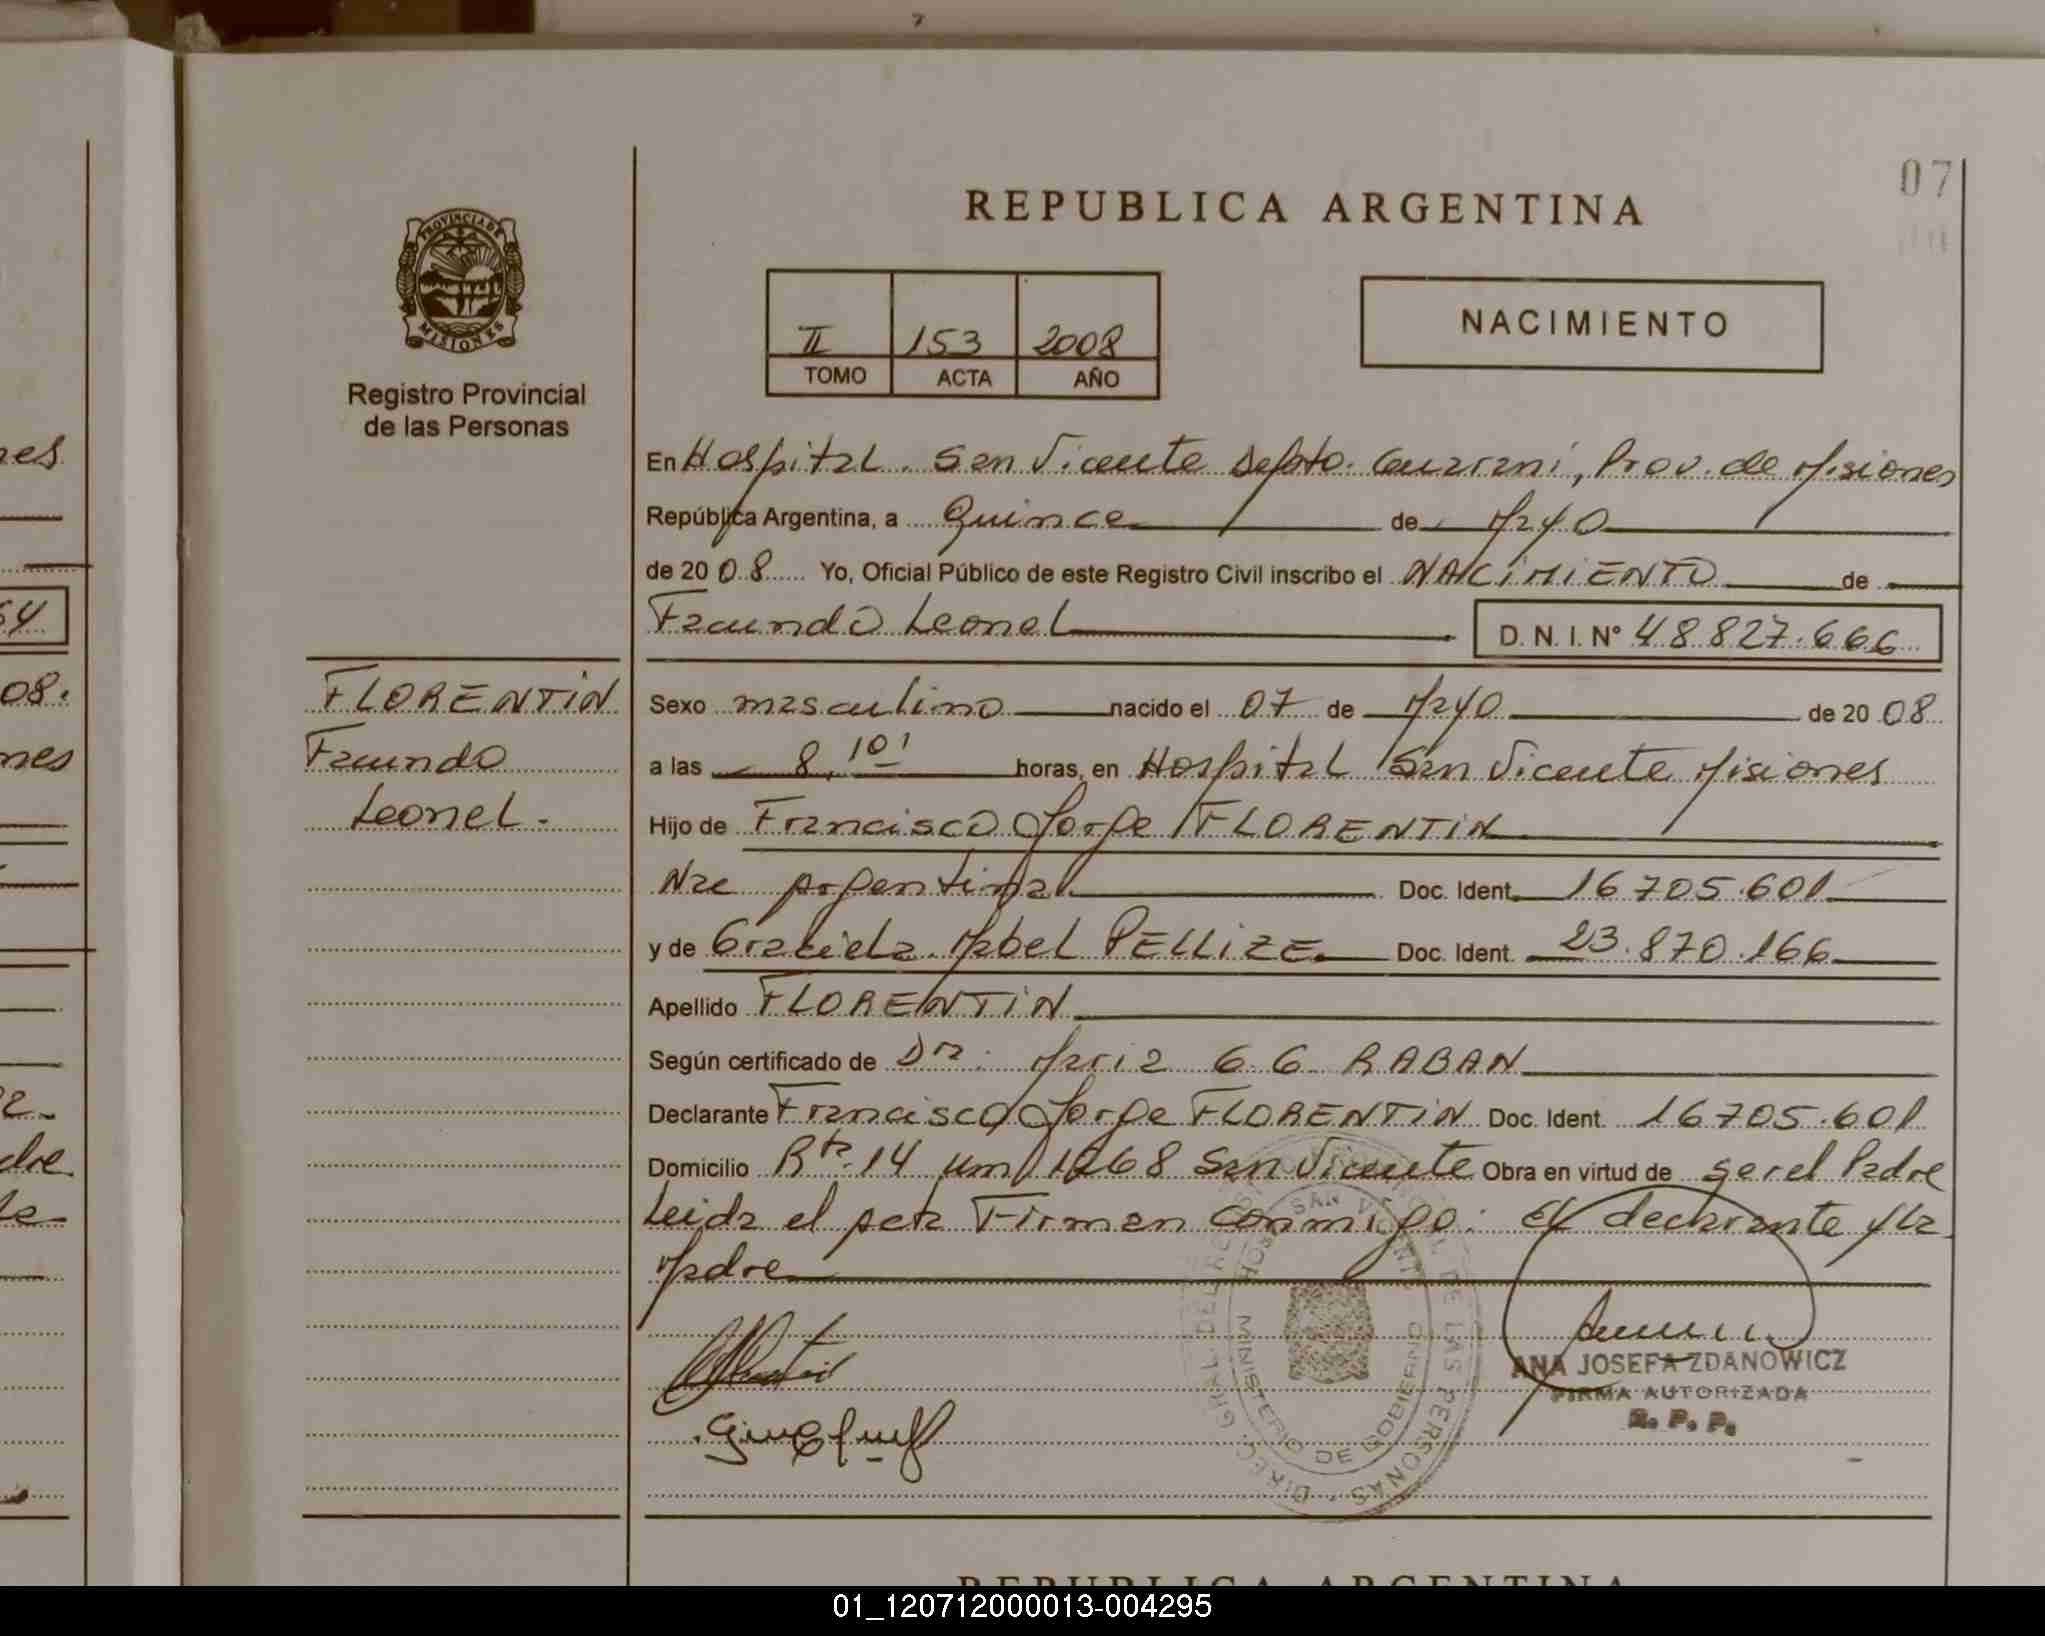 07
REPUBLICA ARGENTINA
PROVINCIA DE
MISIONES
Registro Provincial
de las Personas
II 153 2008
TOMO ACTA AÑO
NACIMIENTO
En Hospital. San Vicente Depto. Guarani, Prov. de Misiones
República Argentina, a Quince de Mayo
de 2008 Yo, Oficial Público de este Registro Civil inscribo el NACIMIENTO de
Facundo Leonel D. N. I. N° 48.827.666
FLORENTIN
Facundo
Leonel.
Sexo masculino nacido el 07 de Mayo de 2008
a las 8,10' horas, en Hospital San Vicente Misiones
Hijo de Francisco Jorge FLORENTIN
Nac Argentina Doc. Ident. 16.705.601
y de Graciela Mabel PELLIZE Doc. Ident. 23.870.166
Apellido FLORENTIN
Según certificado de Dra. Maria G. G. RABAN
Declarante Francisco Jorge FLORENTIN Doc. Ident. 16.705.601
Domicilio Rta. 14 Km 1268 San Vicente Obra en virtud de ser el Padre
Leida el acta Firman conmigo: el declarante y la
Madre
HOSP. SAN VICENTE
MINISTERIO DE GOBIERNO
DE LAS PERSONAS
ANA JOSEFA ZDANOWICZ
FIRMA AUTORIZADA
R. P. P.
REPUBLICA ARGENTINA
nes
64
08.
nes
dre
01_120712000013-004295